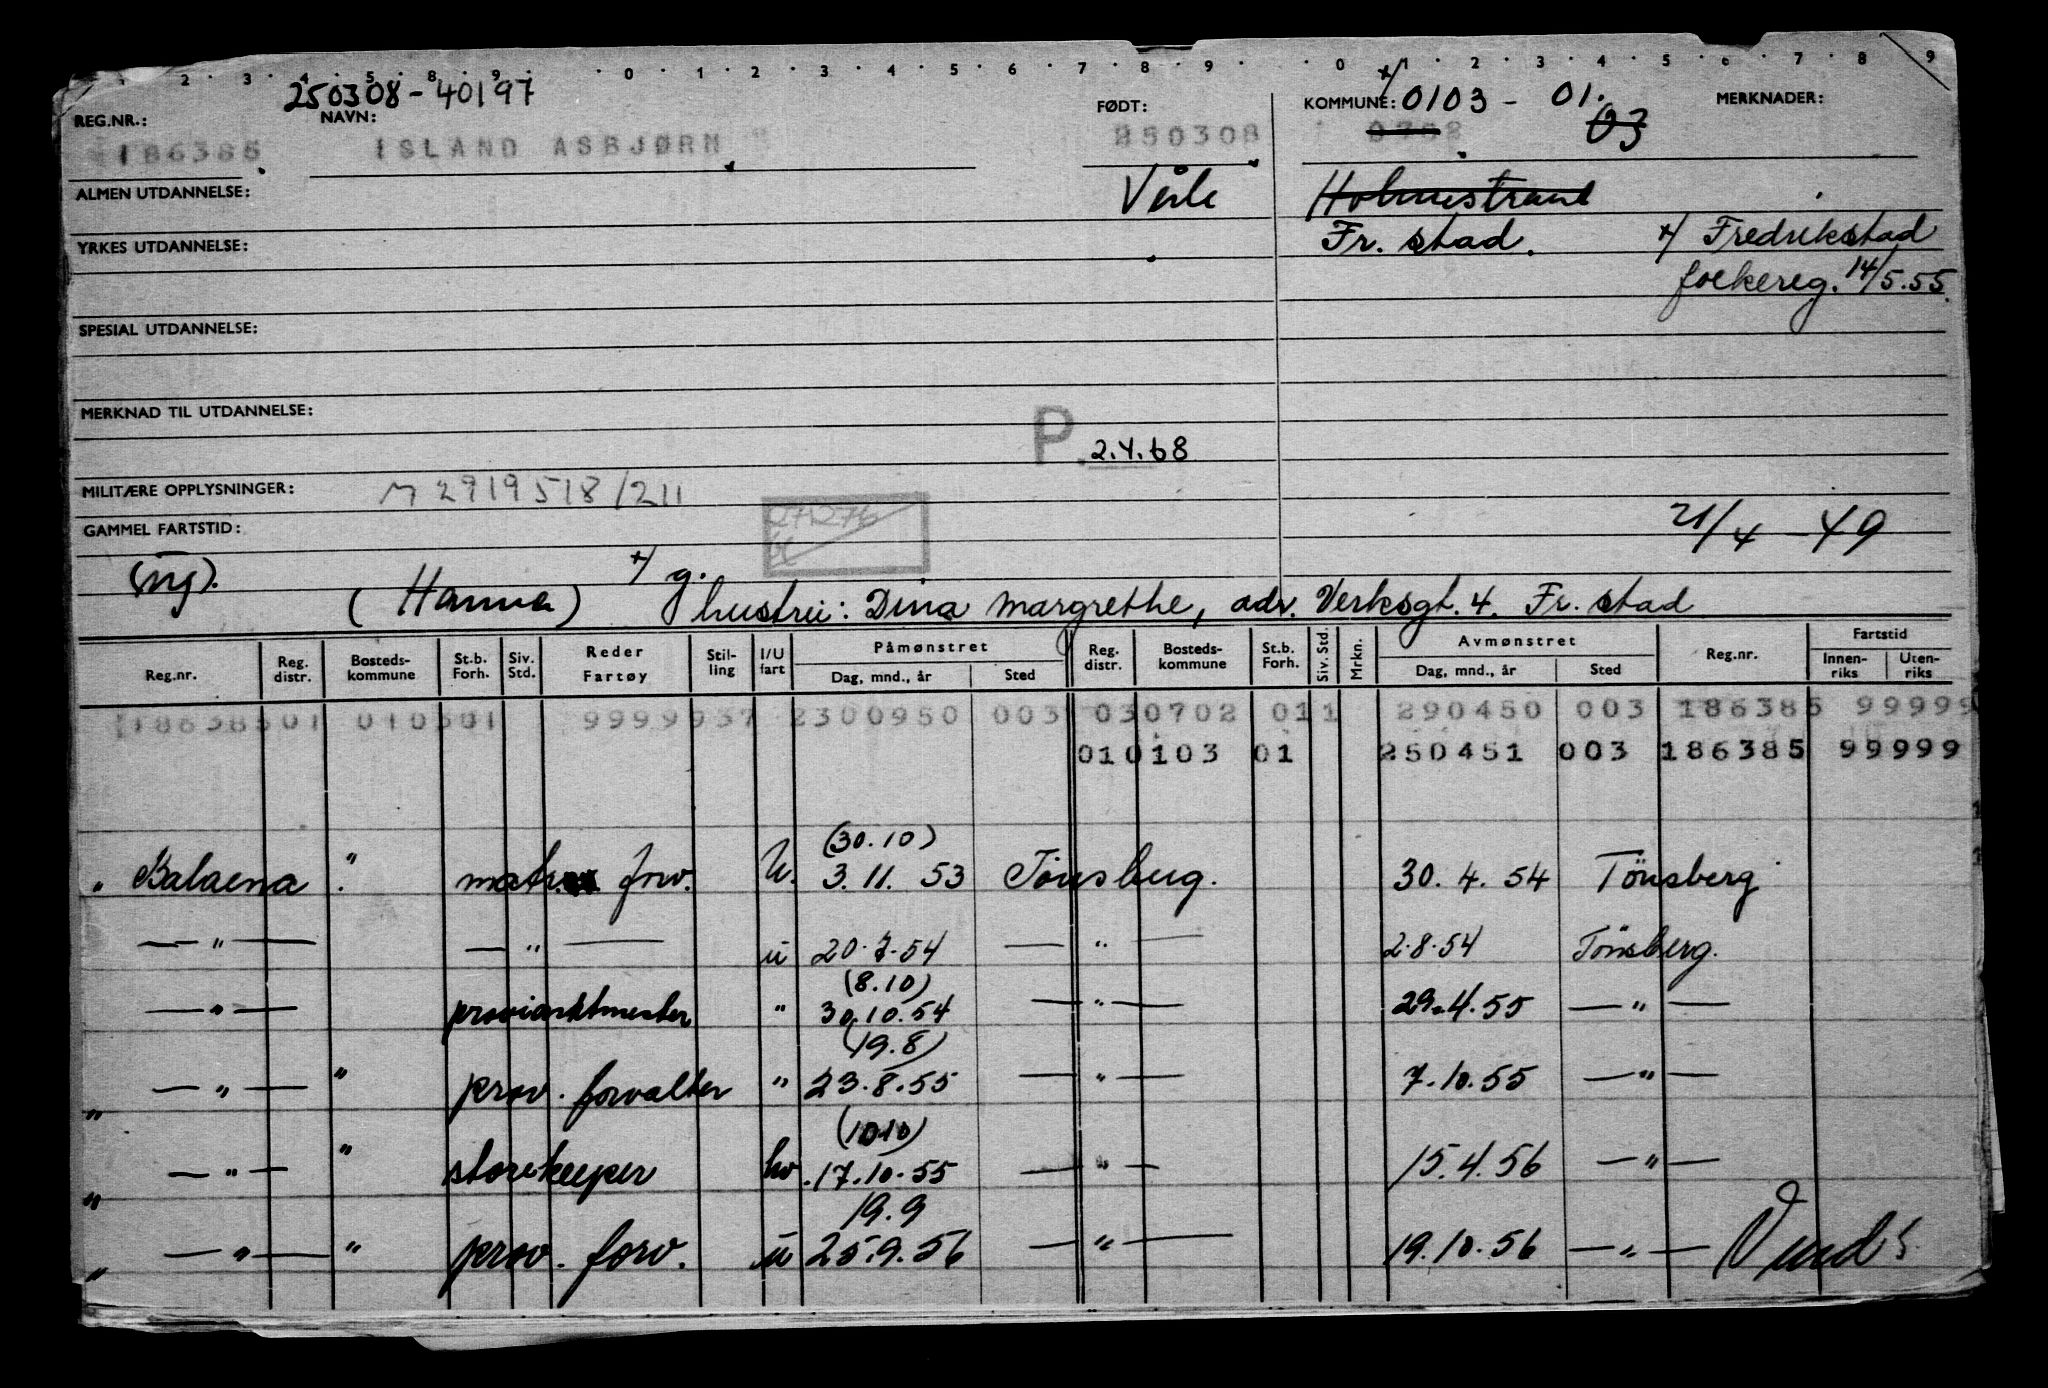 1 2 3 4 5 8 9 0 1 2 3 4 5 6 7 8 9 0 1 2 3 4 5 6 7 8 9
250308-40197
REG.NR.: NAVN: FØDT: KOMMUNE: +/ 0103 - 01. 03 MERKNADER:
186385 ISLAND ASBJØRN 250308 0702
ALMEN UTDANNELSE: Veile Holmestrand
YRKES UTDANNELSE: Fr. stad. +/ Fredrikstad
folkereg. 14/5.55.
SPESIAL UTDANNELSE:
MERKNAD TIL UTDANNELSE:
P. 2.4.68
MILITÆRE OPPLYSNINGER: M 2919518/211
GAMMEL FARTSTID: 271276 21/4-49
(ng). +/ g.
(Hanna) hustru: Dina Margrethe, adr. Verksgt. 4. Fr. stad
Reg.nr. Reg. distr. Bosteds-kommune St.b. Forh. Siv. Std. Reder Fartøy Stil-ling I/U fart Påmønstret Dag, mnd., år Sted Reg. distr. Bosteds-kommune St.b. Forh. Siv. Std. Mrkn. Avmønstret Dag, mnd., år Sted Reg.nr. Fartstid Innen-riks Uten-riks
18638501 010301 9999937 2300950 003 030702 011 290450 003 186385 99999
010103 01 250451 003 186385 99999
(30.10)
" Balaena " matr. forv. U. 3.11.53 Tönsberg. 30.4.54 Tönsberg
— " — — " — u 20.7.54 — " — 2.8.54 Tönsberg.
(8.10)
— " — proviantmester " 30.10.54 — " — 29.4.55 — " —
(19.8)
" — " — " prov. forvalter " 23.8.55 — " — 7.10.55 — " —
(10.10)
" — " — " storekeeper hv. 17.10.55 — " — 15.4.56 — " —
19.9
" — " — " prov. forv. u 25.9.56 — " — 19.10.56 — " — Vend